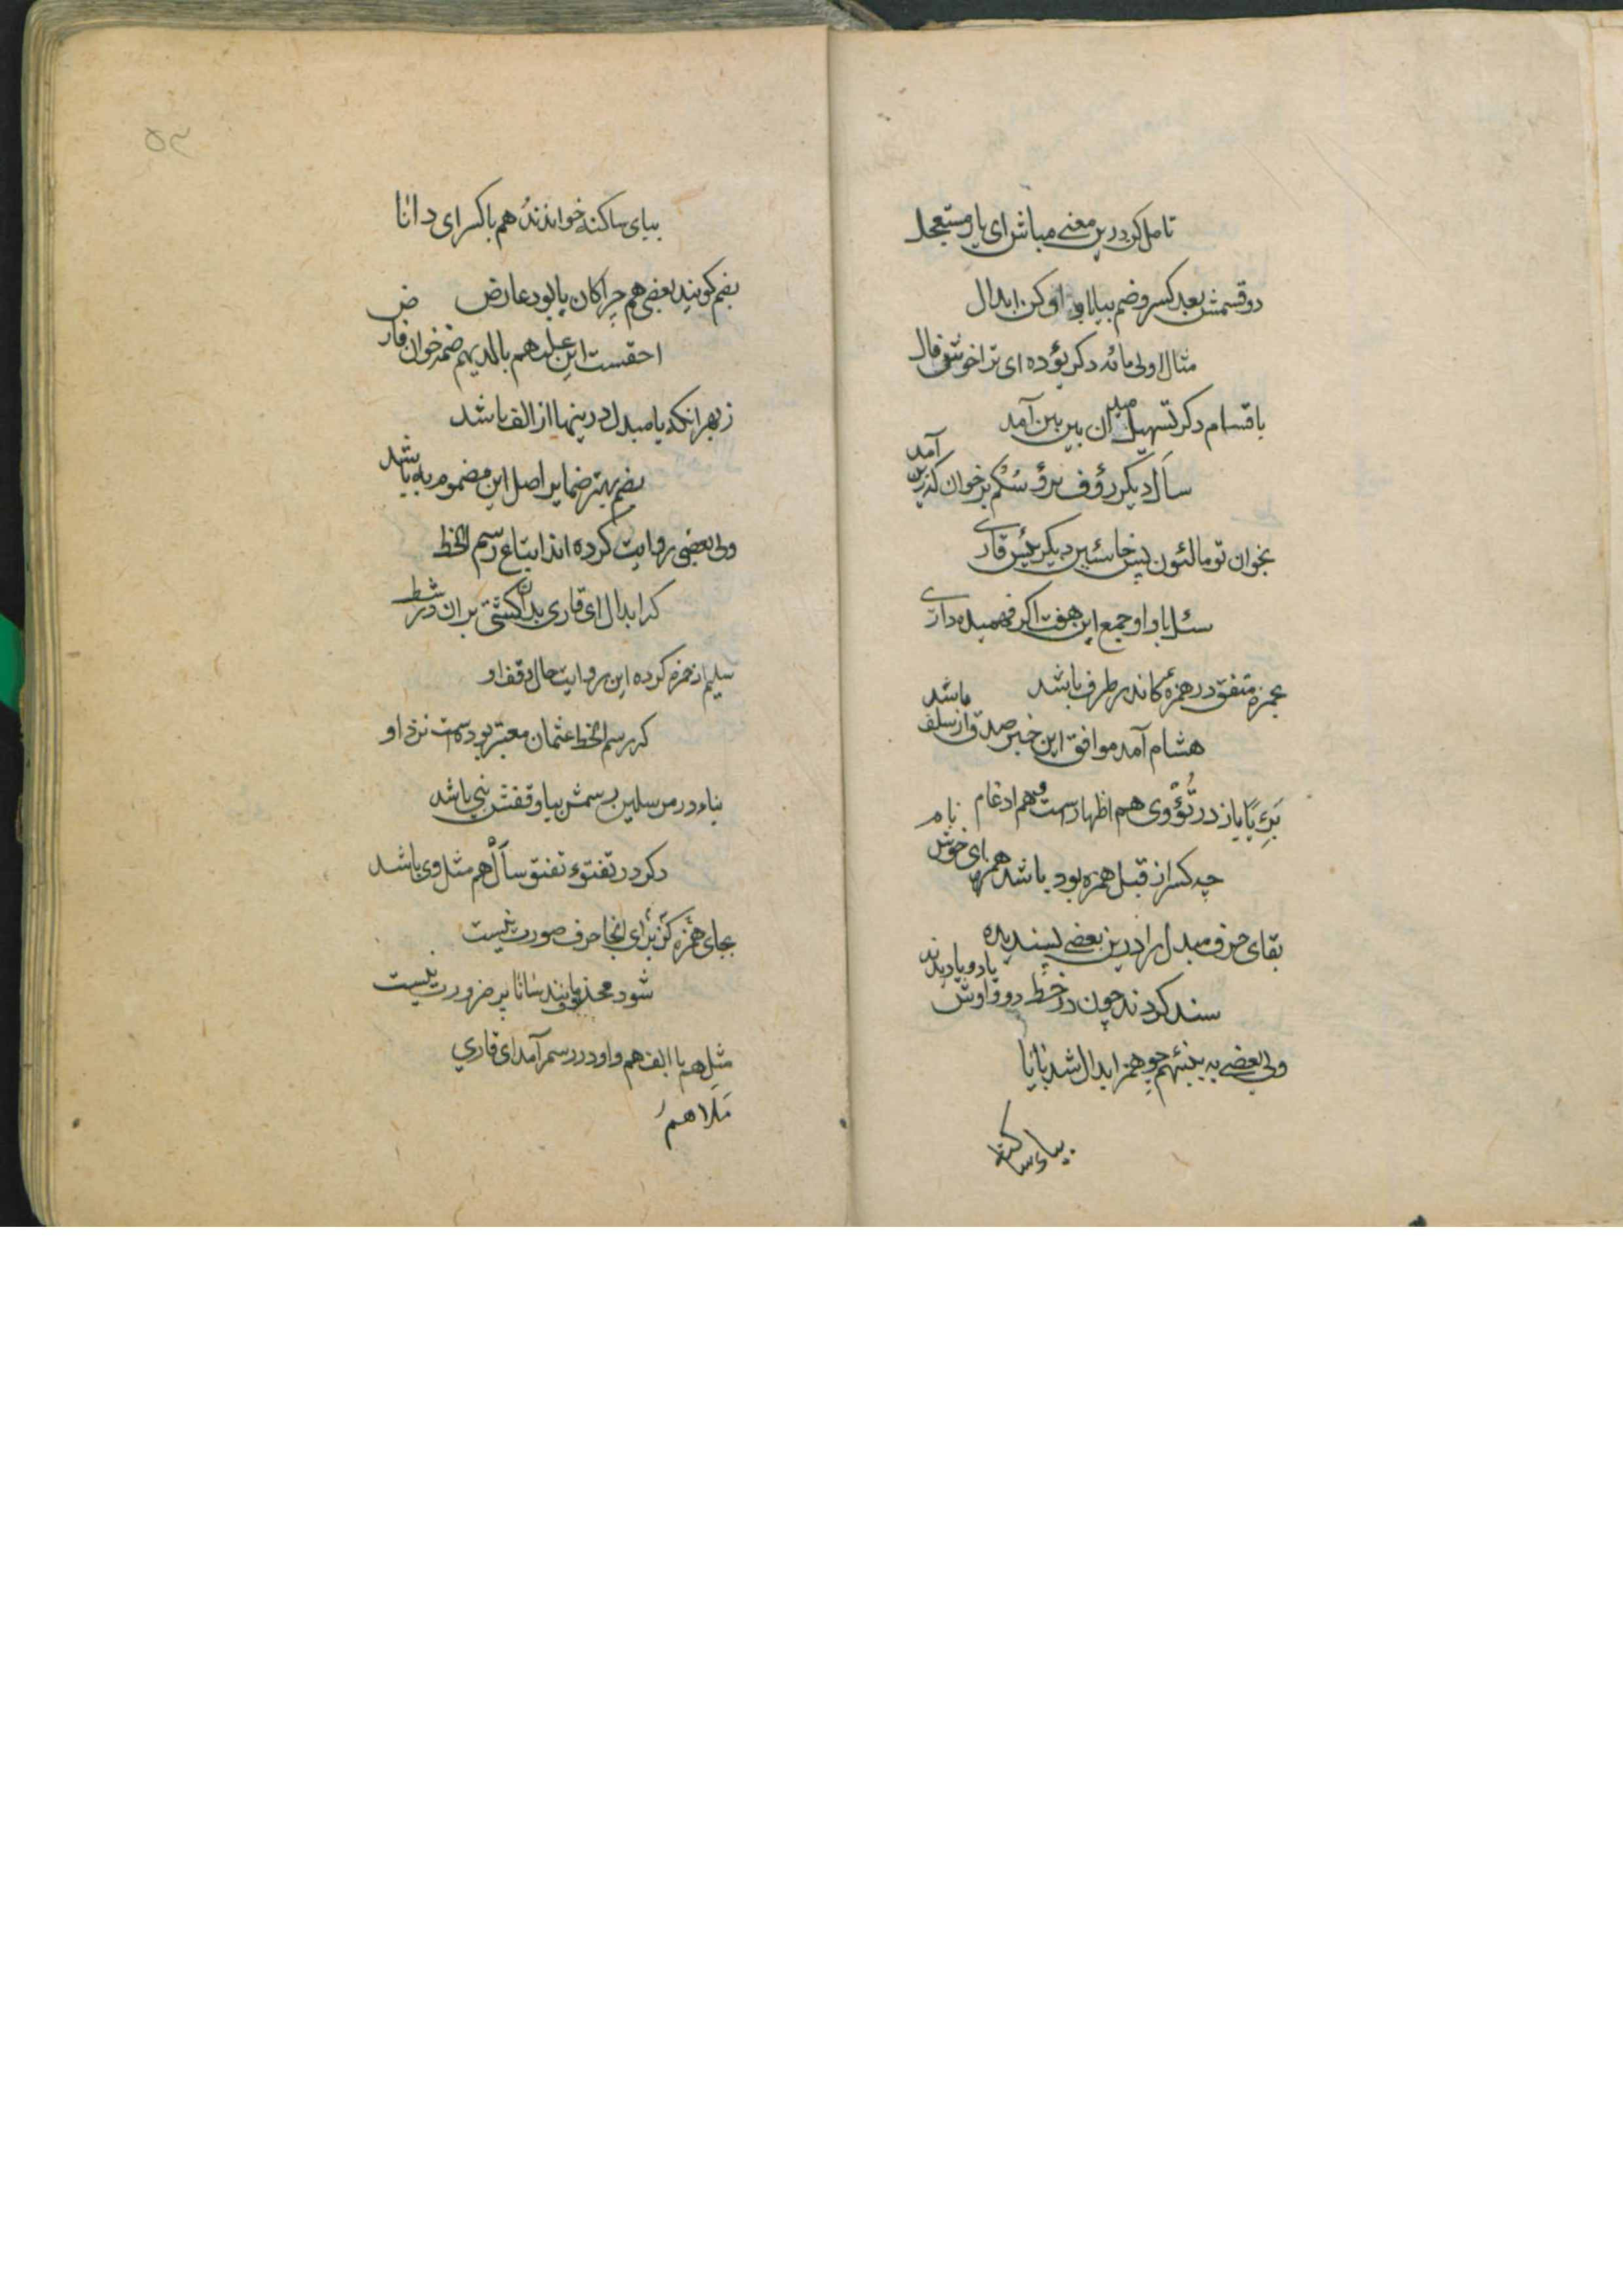 تامل کن درین معنی مباش ای یار مستعجل
دو قسمش بعد کسر و ضم بیا یا واو کن ابدال
مثال اولی مائه دکر یؤده ای ترا خوش فال
باقسام دکر تسهیل میدان بین بین آمد
سأل دیکر رؤف برؤسکم برخوان کزین آمد
بخوان تو مالئون پس خاسئین دیکر یئس قاری
سئل با واو جمع این هفت اکر فهمیده داری
بحمزه متفق در همزهٔ کاندر طرف باشد
هشام آمد موافق این خبر صدق از سلف باشد
رءیا باز در تؤوی هم اظهارست و هم ادغام
چه کسر از قبل همزه بود باشد همزه ای خوش نام
بقای حرف مبدل را درین بعضی پسندیده
سند کردند چون در خط دو واوش یا دو یا دیدند
ولی بعضی به ینبئهم چو همز ابدال شد با یا
بیای ساکنه
بیای ساکنه خوانند هم با کسر ای دانا
بضم کویند بعضی هم چرا کان یا بود عارض
احقست این علیهم با لدیهم ضمه خوان فارض
زبهر آنکه یا مبدل درینها از الف باشد
بضم بهتر ضمایر اصل این مضموم به باشد
ولی بعضی روایت کرده اند اتباع رسم الخط
که ابدال ای قاری بدان کشتی بران در شط
سلیم از حمزه کرده این روایت حال وقف او
که رسم الخط عثمان معتبر بودست نزد او
بناء در مرسلین رسمش بیا وقفش بنی باشد
دکر در تفتؤ تفتو سأل هم مثل وی باشد
بجای همزه کز برای آنجا حرف صورت نیست
شود محذوف مانند شانا پر ضرورت نیست
مثل هم با الف هم واو در رسم آمد ای قاری
ملا هم
۵۳